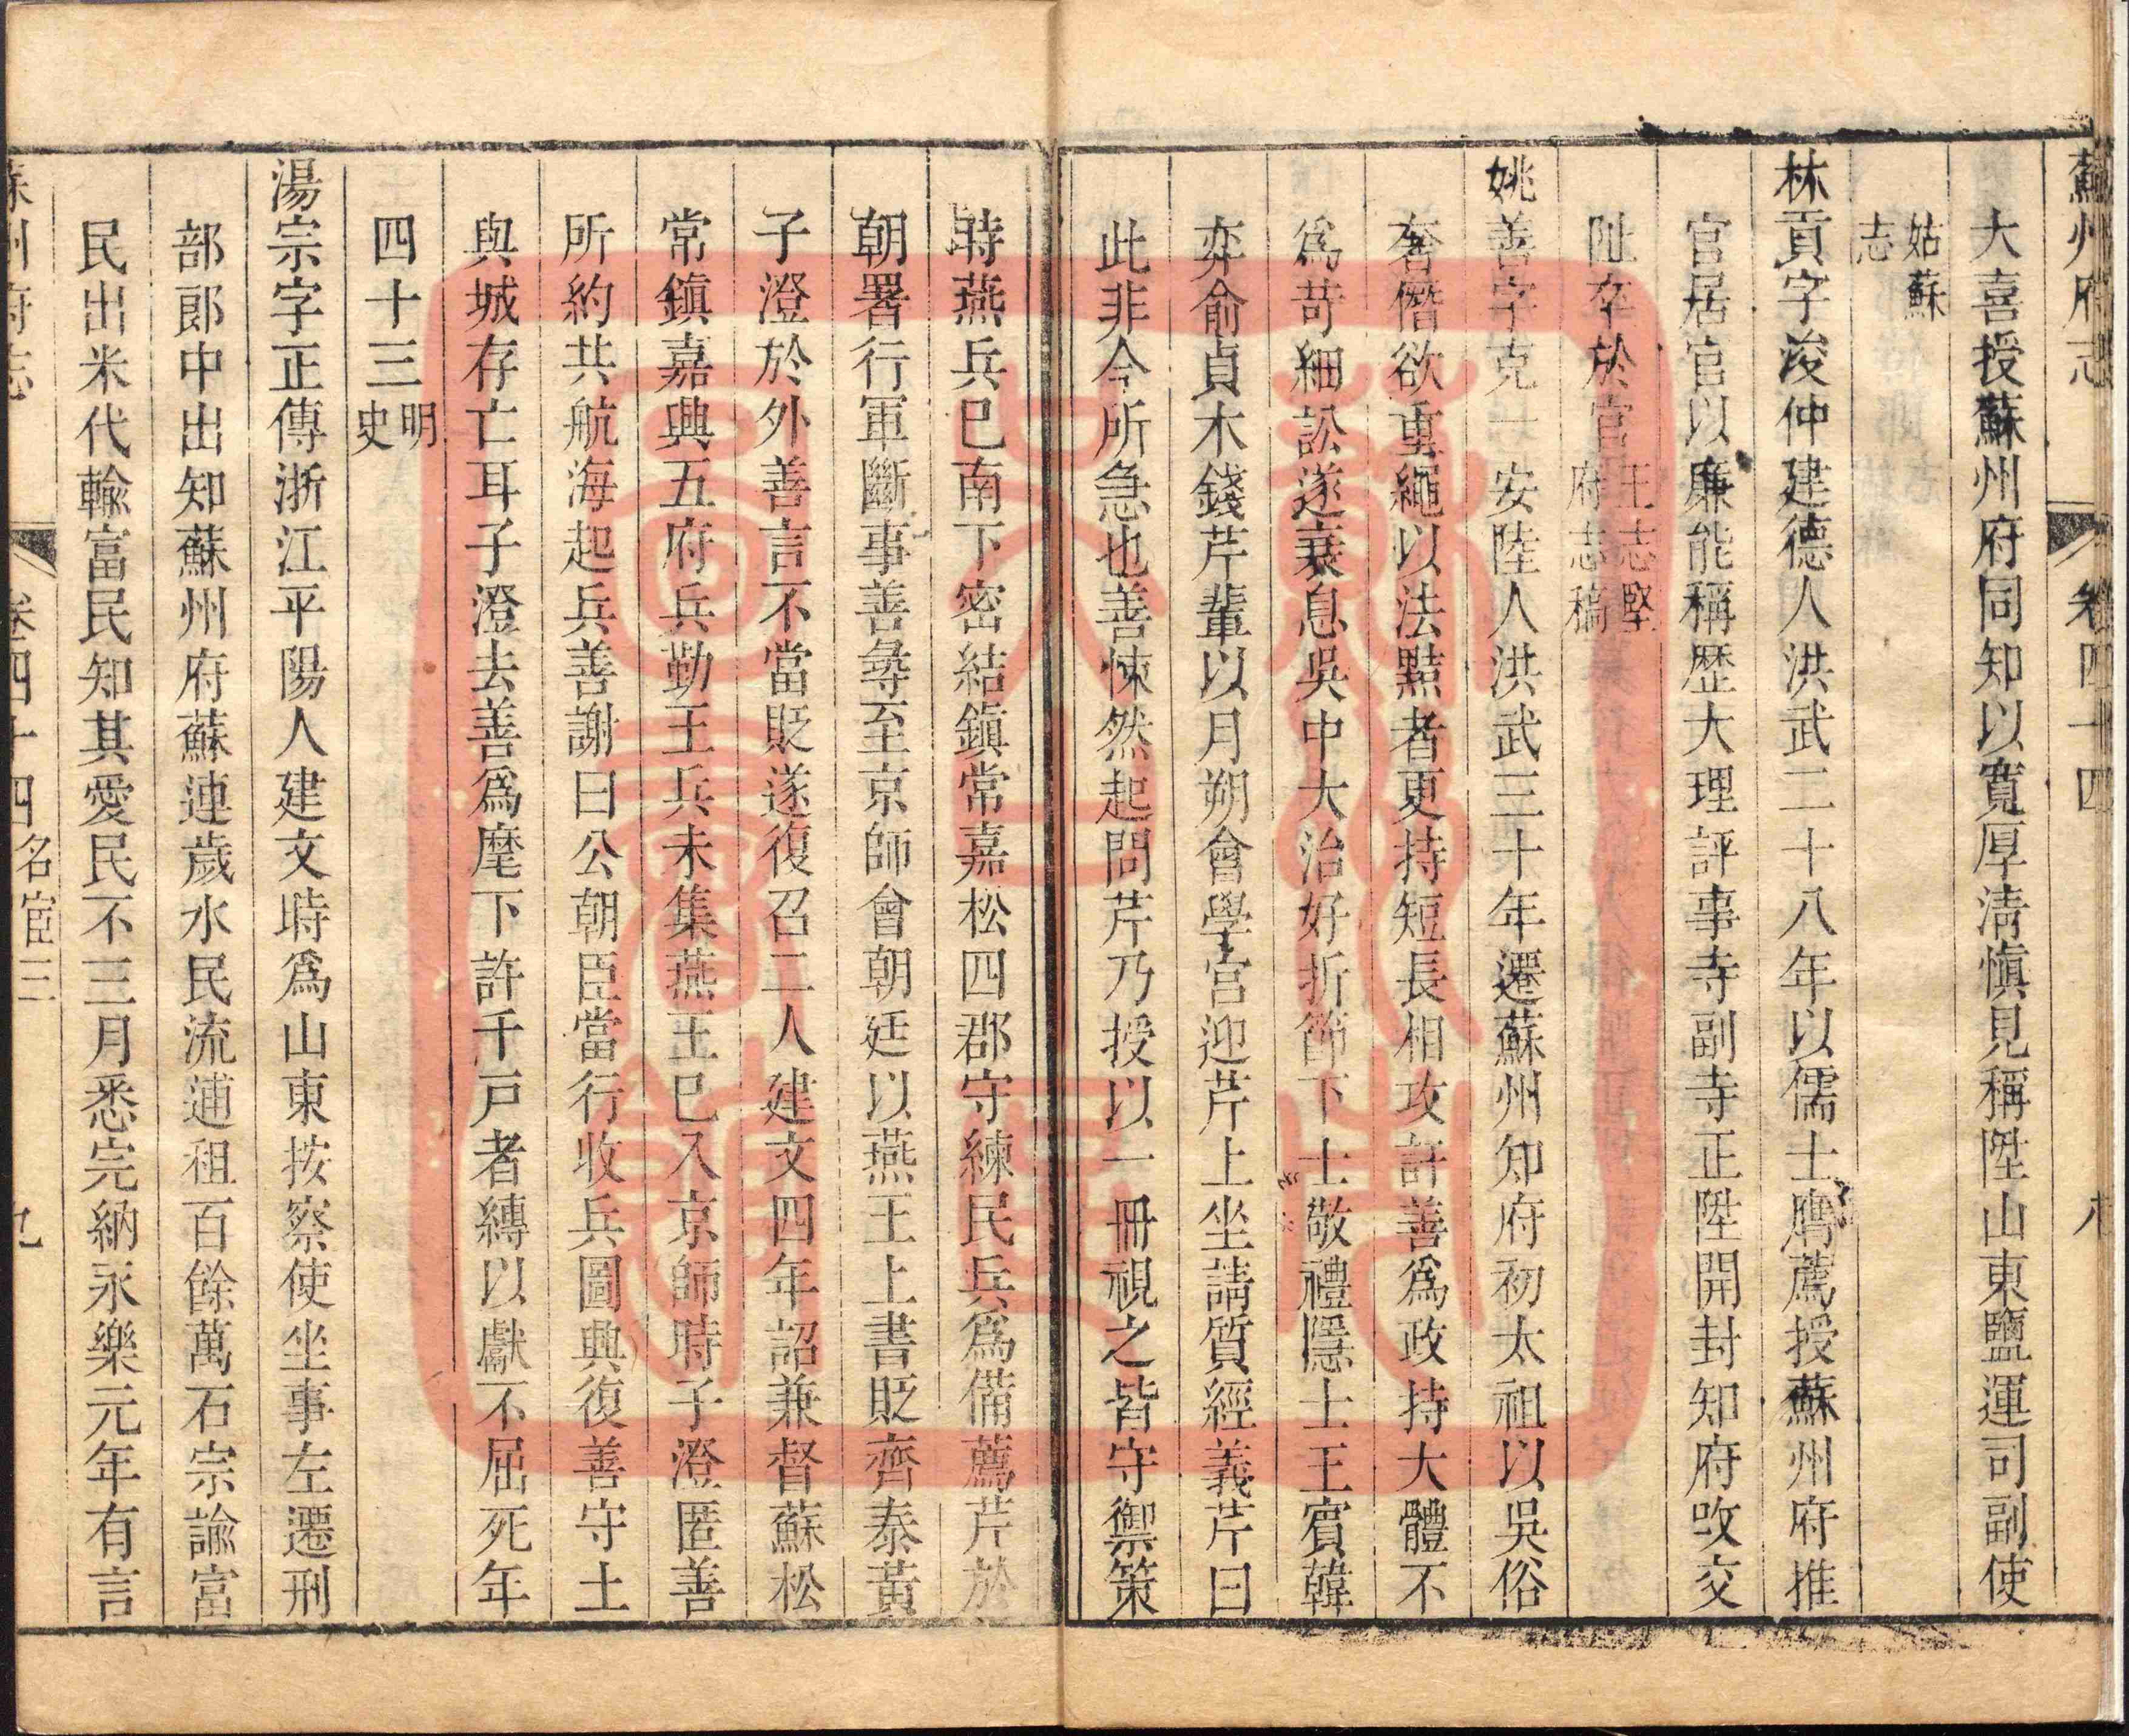 蘇州府志 卷四十四 八
大喜授蘇州府同知以寬厚淸愼見稱陞山東鹽運司副使
姑蘇
志
林貢字浚仲建德人洪武二十八年以儒士膺薦授蘇州府推
官居官以廉能稱歷大理評事寺副寺正陞開封知府攺交
阯卒於官王志堅
府志稿
姚善字克一安陸人洪武三十年遷蘇州知府初太祖以吳俗
奢僭欲重繩以法黠者更持短長相攻訐善爲政持大體不
爲苛細訟遂衰息吳中大治好折節下士敬禮隱士王賓韓
奕俞貞木錢芹輩以月朔會學宮迎芹上坐請質經義芹曰
此非今所急也善悚然起問芹乃授以一冊視之皆守禦策
時燕兵巳南下密結鎭常嘉松四郡守練民兵爲備薦芹於
朝署行軍斷事善尋至京師會朝廷以燕王上書貶齊泰黃
子澄於外善言不當貶遂復召二人建文四年詔兼督蘇松
常鎭嘉興五府兵勤王兵未集燕王巳入京師時子澄匿善
所約共航海起兵善謝曰公朝臣當行收兵圖興復善守土
與城存亡耳子澄去善爲麾下許千戸者縛以獻不屈死年
四十三明
史
湯宗字正傳浙江平陽人建文時爲山東按察使坐事左遷刑
部郞中出知蘇州府蘇連歲水民流逋租百餘萬石宗諭富
民出米代輸富民知其愛民不三月悉完納永樂元年有言
蘇州府志 卷四十四名宦三 九